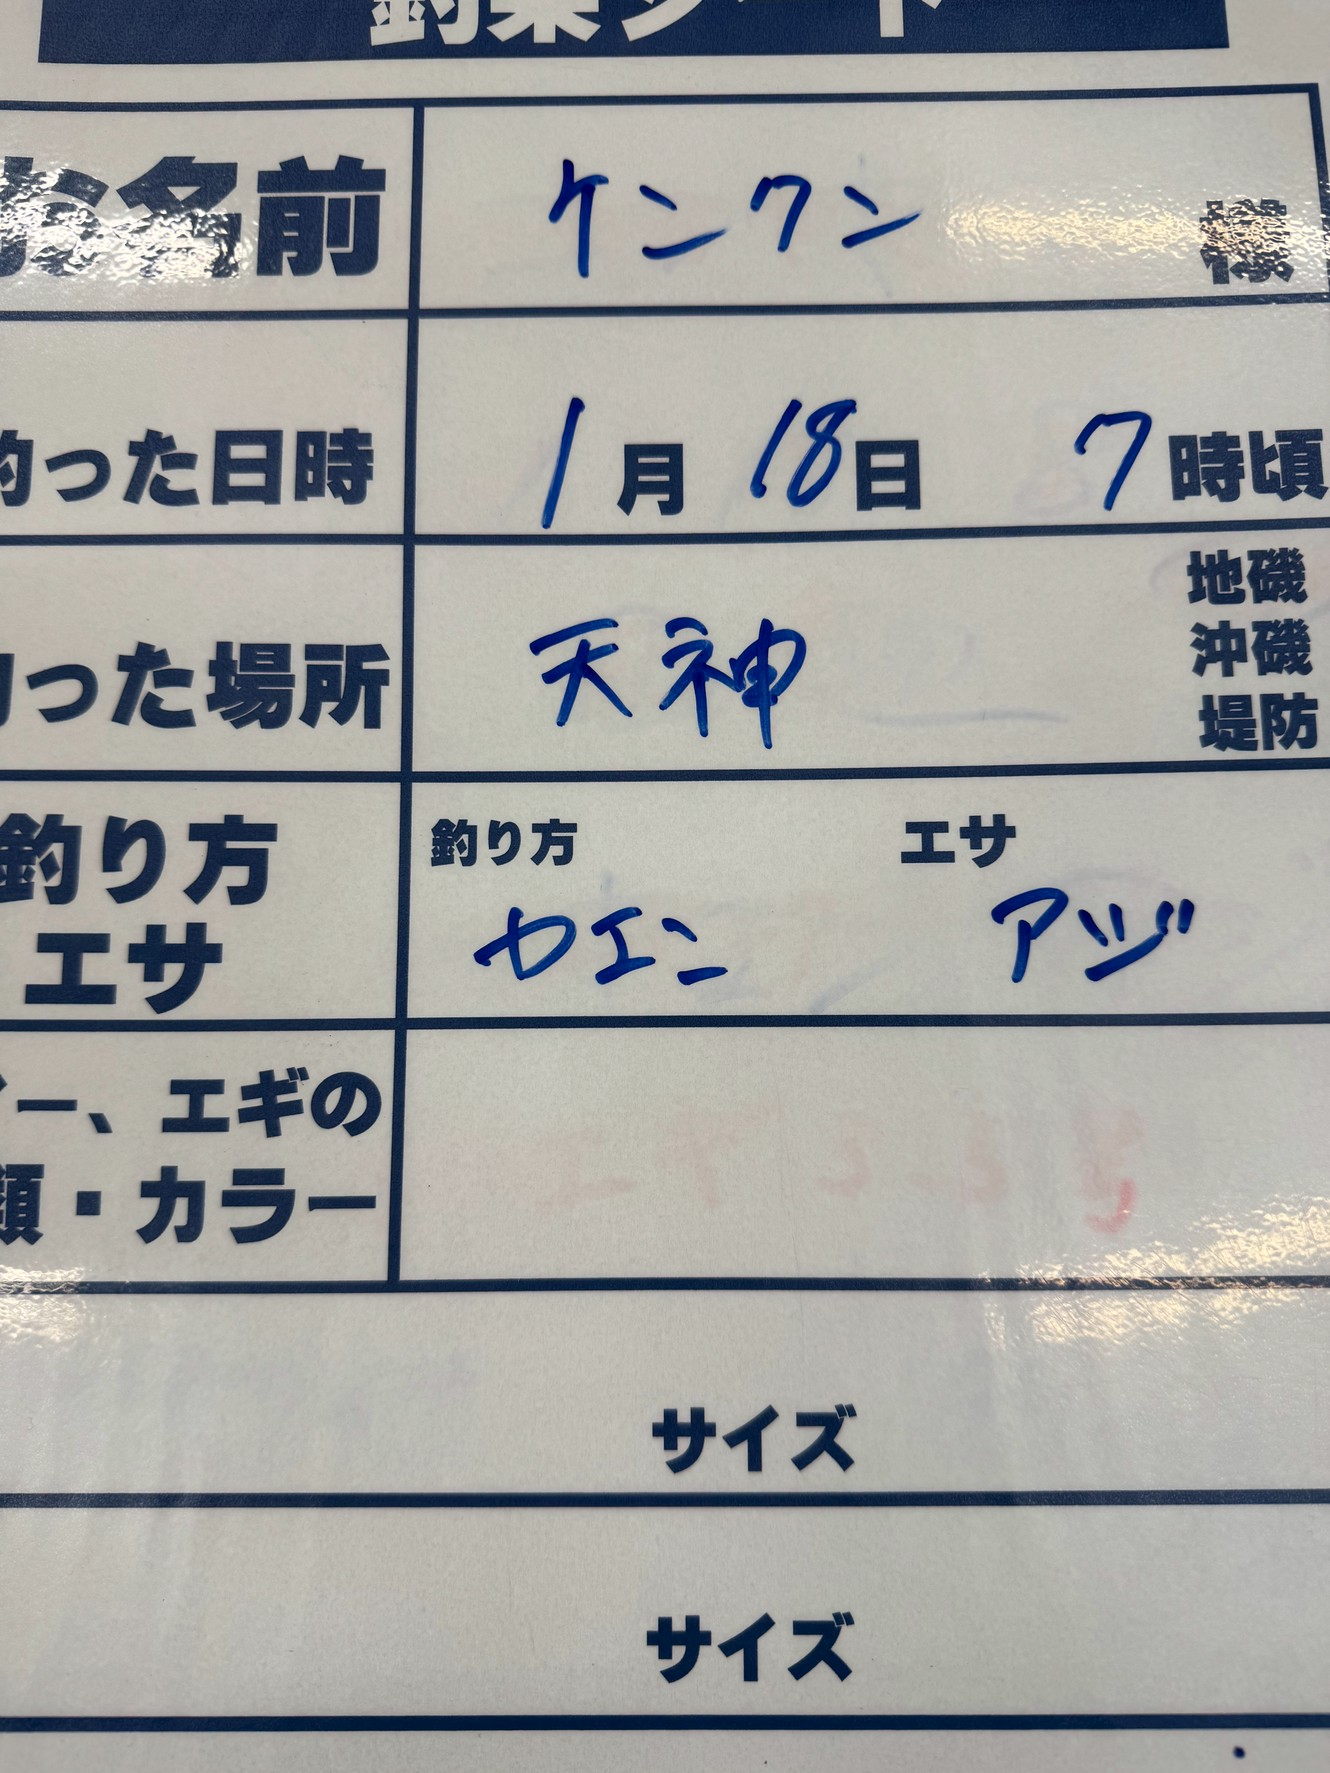 釣果シート
お名前 ケンワン 様
釣った日時 1月 18日 7時頃
地磯
釣った場所 天神 沖磯
堤防
釣り方 釣り方 エサ
エサ カエン アジ
ー、エギの
類・カラー
サイズ
サイズ